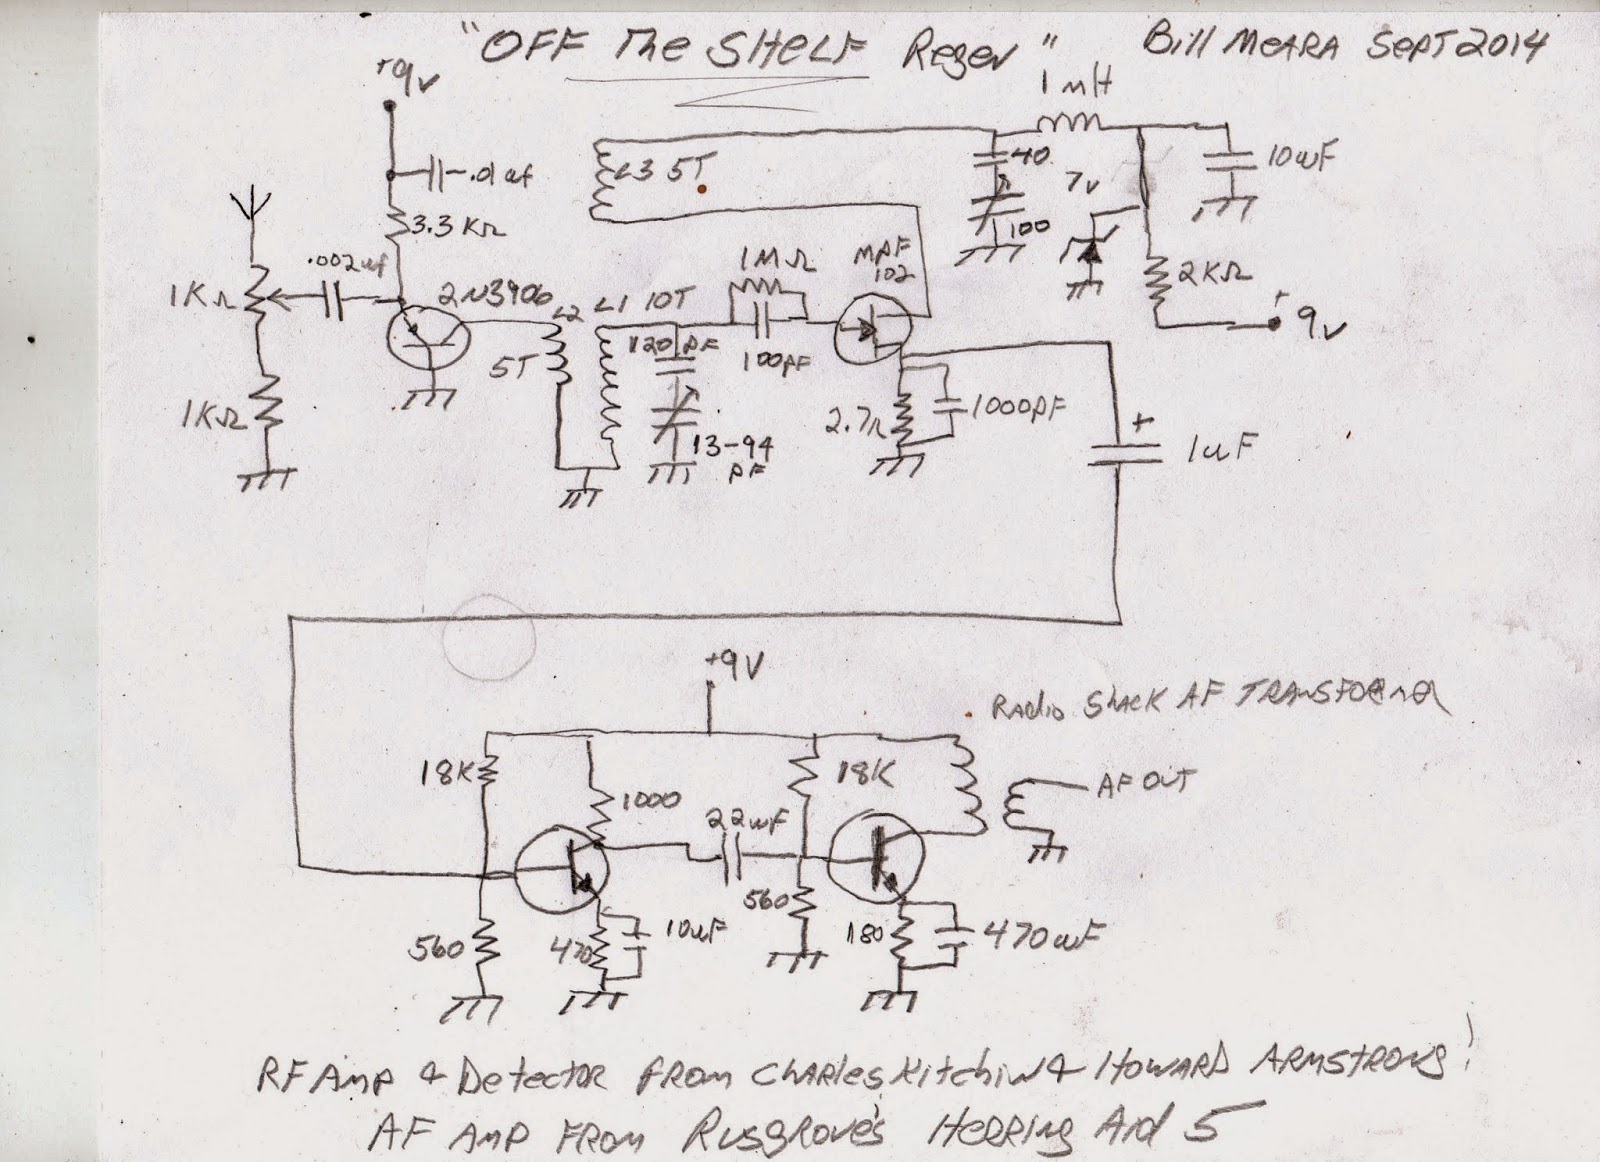 "OFF The SHELF Regen" Bill MEARA SEPT 2014
+9v
1 mH
.01 uf
L3 5T
40
10uF
7v
3.3 KΩ
100
.002uf
1MΩ
MPF
102
2KΩ
1KΩ
2N3906
L2
L1 10T
+
9v
120 pF
100pF
5T
1KΩ
2.7Ω
1000pF
13-94
pF
+
1uF
+9V
RADIO SHACK AF TRANSFORMER
18K
1000
18K
AF OUT
22uF
560
470
10uF
560
180
470uF
RF AMP & Detector FROM CHARLES Kitchin & HOWARD ARMSTRONG!
AF AMP FROM Rusgrove's HERRING AID 5